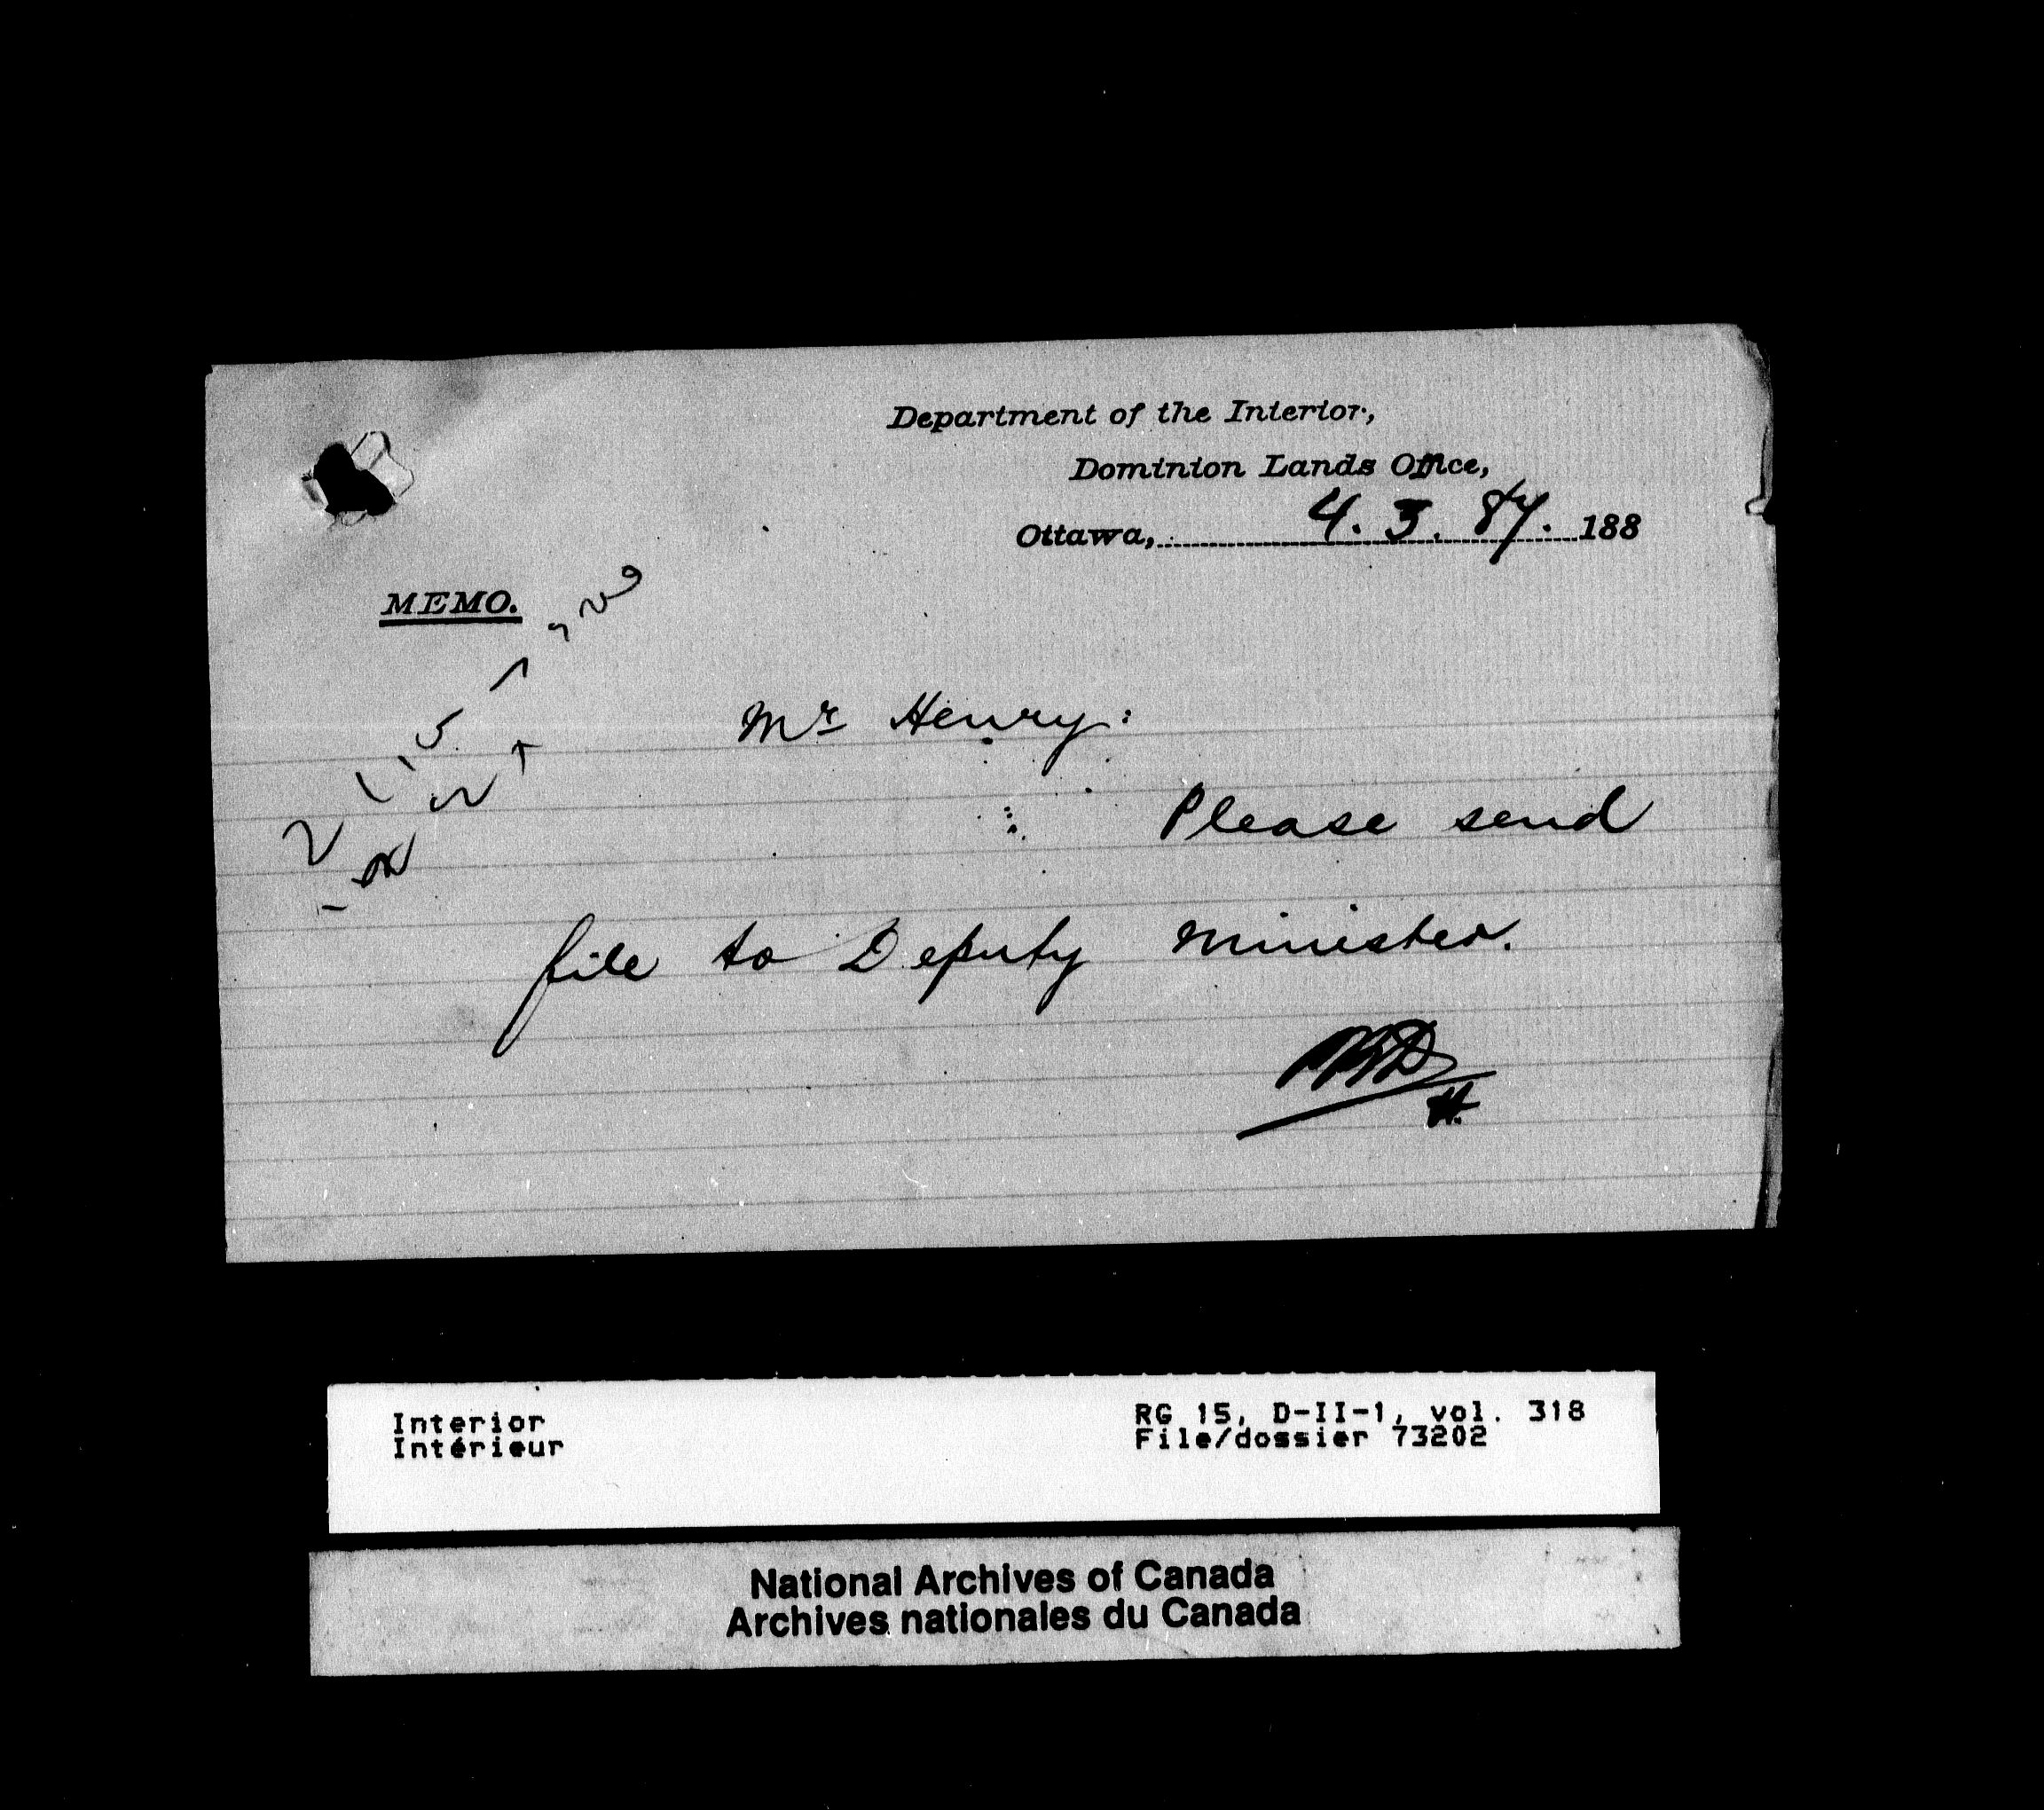 Department of the Interior,
Dominion Lands Office,
Ottawa, 4. 3. 87. 188
MEMO.
Mr Henry:
Please send
file to Deputy Minister.
H.
Interior
Intérieur
RG 15, D-II-1, vol. 318
File/dossier 73202
National Archives of Canada
Archives nationales du Canada